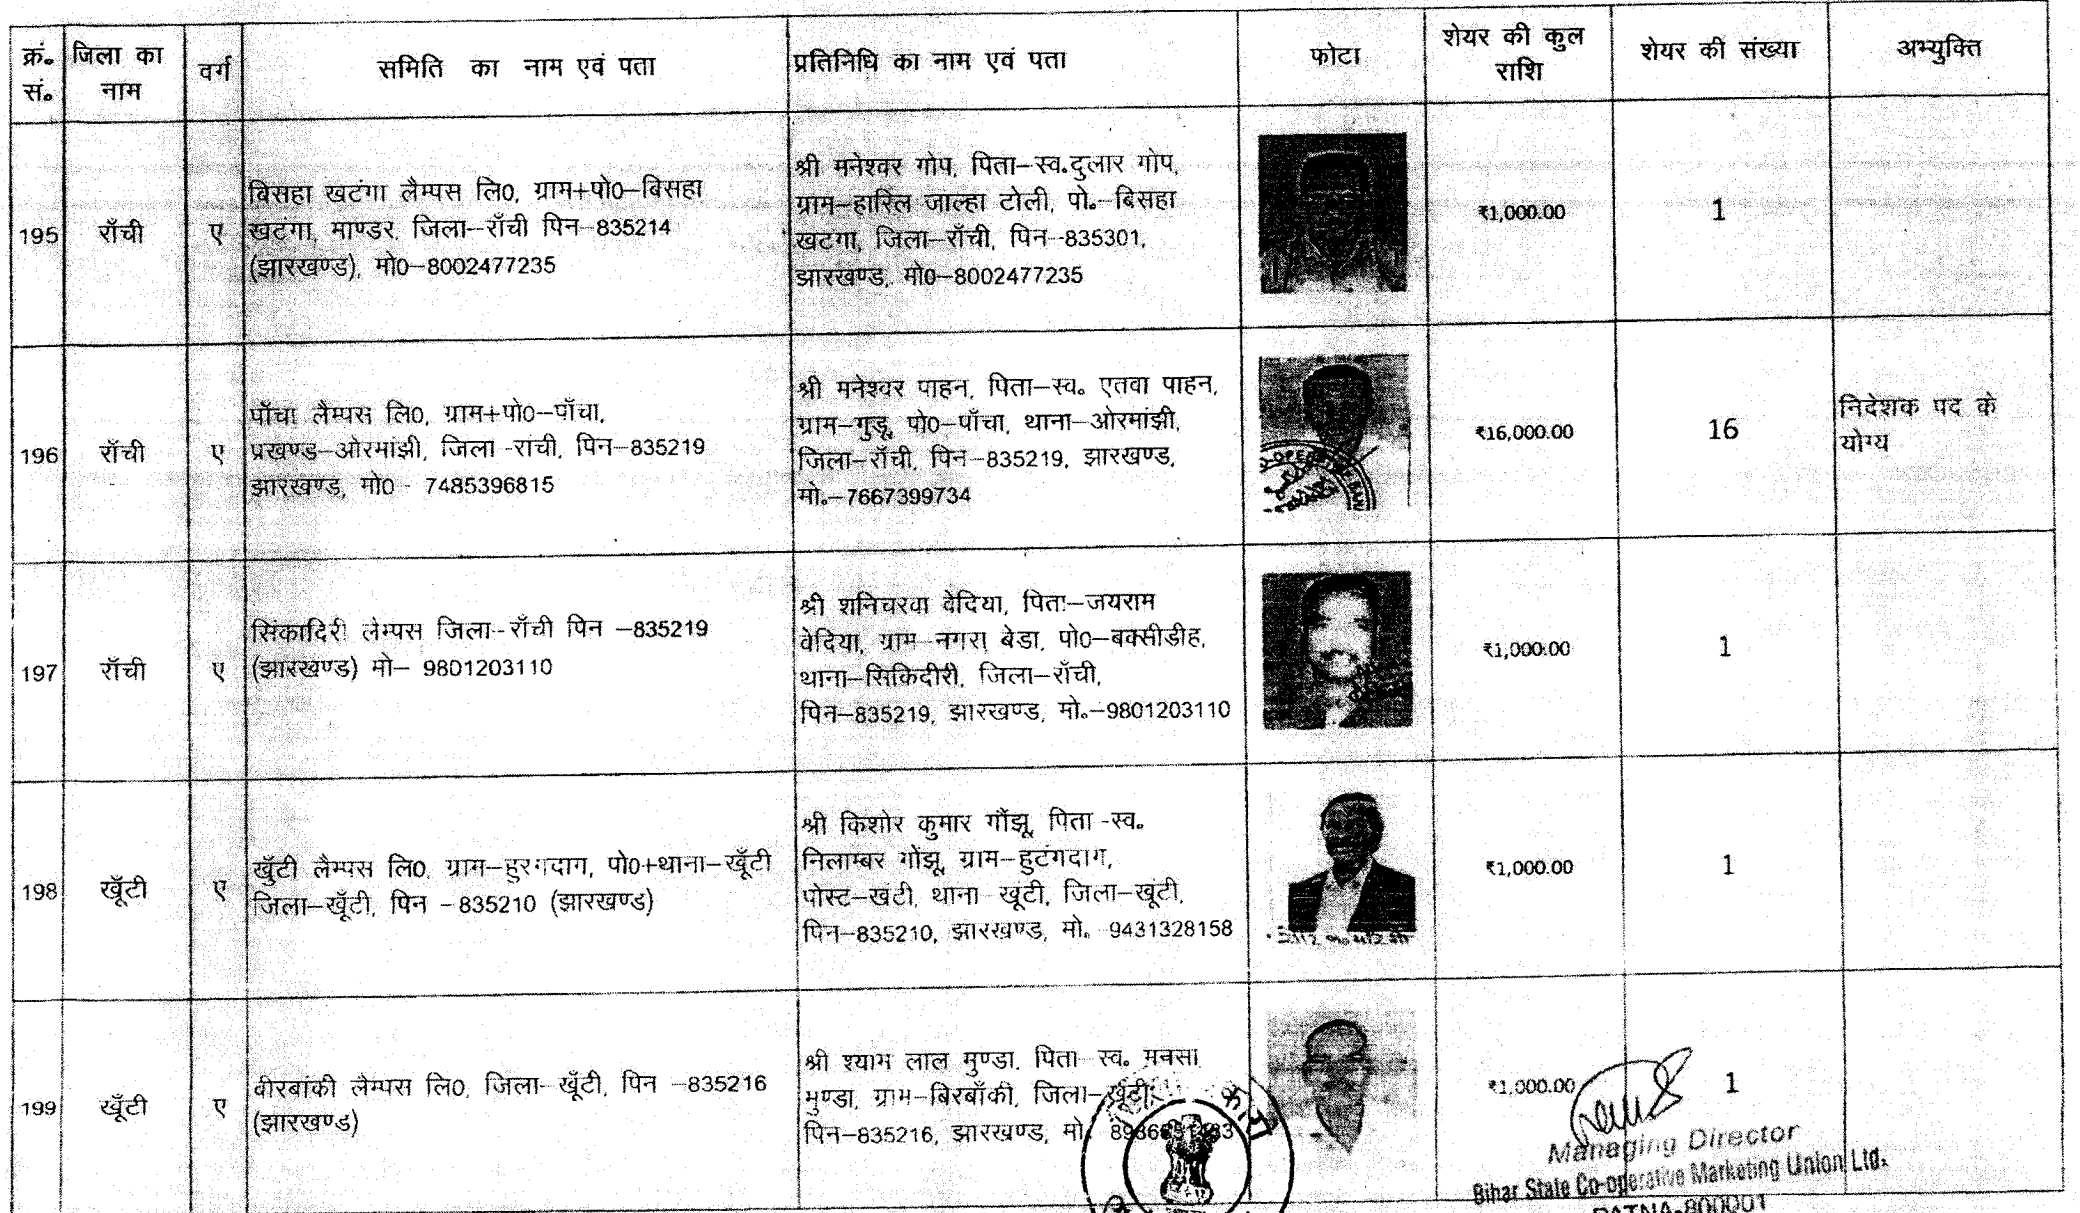 क्रं॰ सं॰
जिला का नाम
वर्ग
समिति का नाम एवं पता
प्रतिनिधि का नाम एवं पता
फोटा
शेयर की कुल राशि
शेयर की संख्या
अभ्युक्ति
195
राँची
ए
बिसहा खटंगा लैम्पस लि0, ग्राम+पो0–बिसहा
खटंगा, माण्डर, जिला–राँची पिन–835214
(झारखण्ड), मो0–8002477235
श्री मनेश्वर गोप, पिता–स्व.दुलार गोप,
ग्राम–हारिल जाल्हा टोली, पो.–बिसहा
खटगा, जिला–राँची, पिन–835301,
झारखण्ड, मो0–8002477235
₹1,000.00
1
196
राँची
ए
पाँचा लैम्पस लि0, ग्राम+पो0–पाँचा,
प्रखण्ड–ओरमांझी, जिला -रांची, पिन–835219
झारखण्ड, मो0 - 7485396815
श्री मनेश्वर पाहन, पिता–स्व. एतवा पाहन,
ग्राम–गुडू, पो0–पाँचा, थाना–ओरमांझी,
जिला–राँची, पिन–835219, झारखण्ड,
मो.–7667399734
₹16,000.00
16
निदेशक पद के
योग्य
197
राँची
ए
सिकादिरी लेम्पस जिला–राँची पिन –835219
(झारखण्ड) मो– 9801203110
श्री शनिचरवा वेदिया, पिता–जयराम
वेदिया, ग्राम–नगरा बेडा, पो0–बक्सीडीह,
थाना–सिकिदीरी, जिला–राँची,
पिन–835219, झारखण्ड, मो.–9801203110
₹1,000.00
1
198
खूँटी
ए
खूँटी लैम्पस लि0, ग्राम–हुरगदाग, पो0+थाना–खूँटी
जिला–खूँटी, पिन –835210 (झारखण्ड)
श्री किशोर कुमार गौंझू, पिता -स्व.
निलाम्बर गोंझू, ग्राम–हुटंगदाग,
पोस्ट–खंटी, थाना खूटी, जिला–खूंटी,
पिन–835210, झारखण्ड, मो. 9431328158
₹1,000.00
1
199
खूँटी
ए
वीरबांकी लैम्पस लि0, जिला–खूँटी, पिन –835216
(झारखण्ड)
श्री श्याम लाल मुण्डा, पिता स्व. मनसा
मुण्डा, ग्राम–बिरबाँकी, जिला–खूंटी,
पिन–835216, झारखण्ड, मो.
₹1,000.00
1
Managing Director
Bihar State Co-operative Marketing Union Ltd.
PATNA-800001